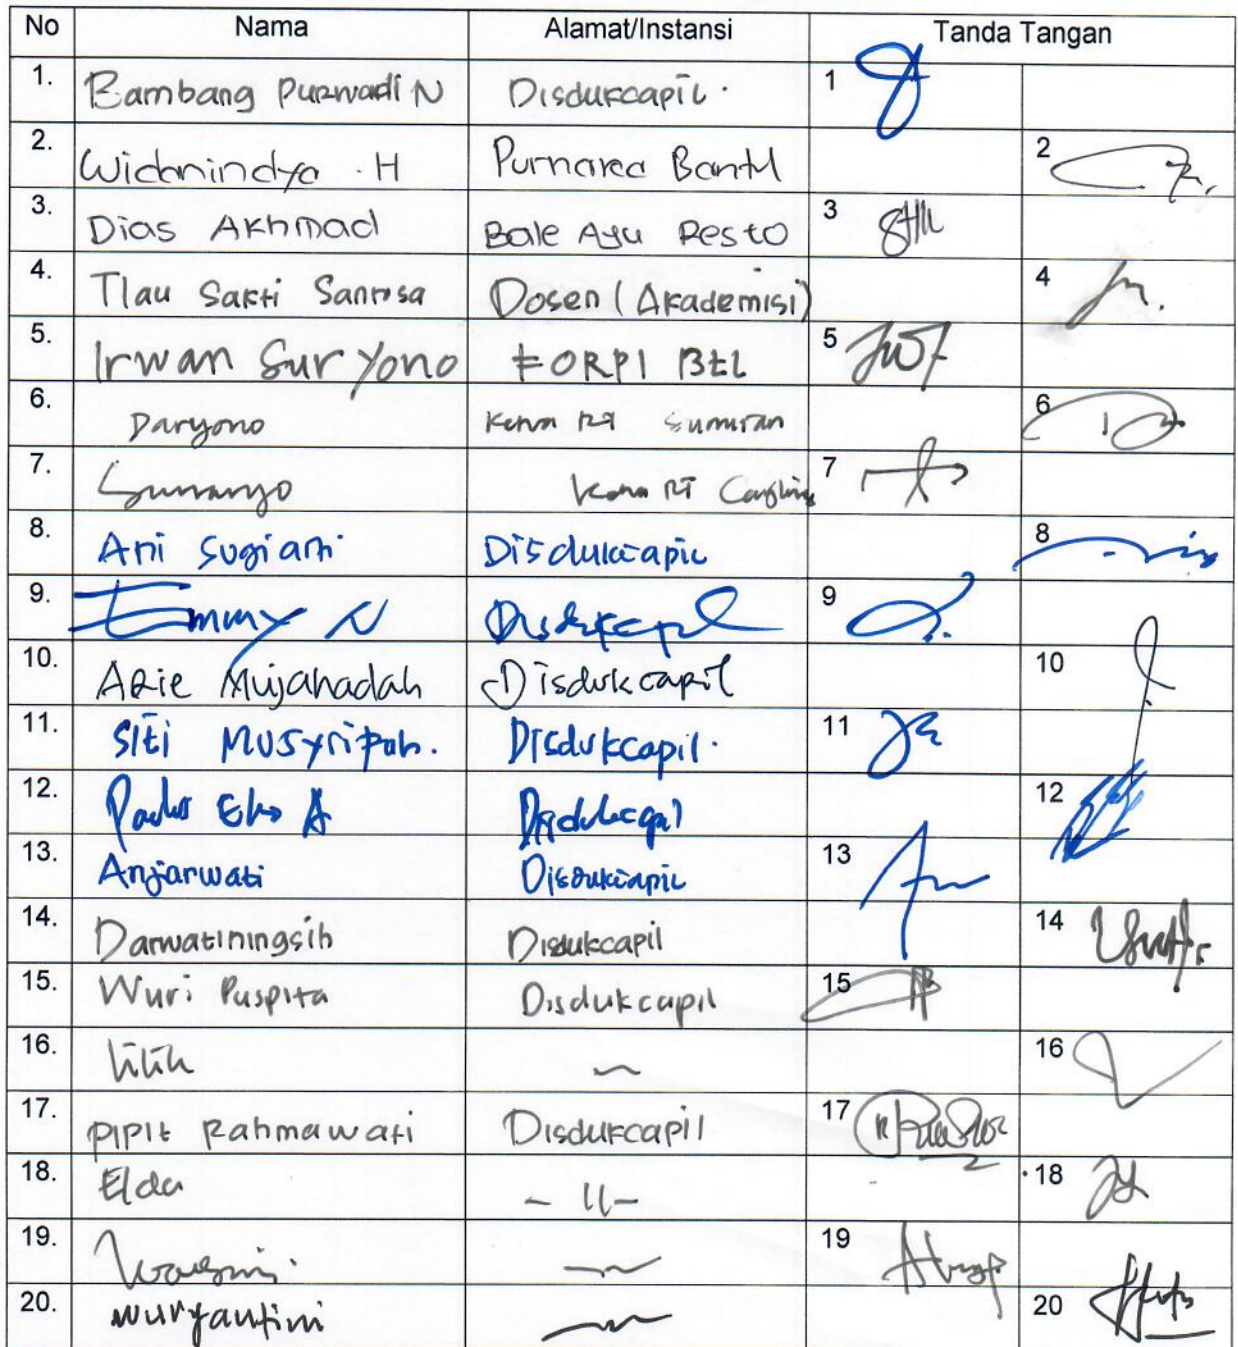 No Nama Alamat/Instansi Tanda Tangan
1. Bambang Purwadi N Disdukcapil. 1
2. Widanindya . H Purnarea Bantul 2
3. Dias Akhmad Bale Ayu Resto 3
4. Tlau Sakti Santosa Dosen (Akademisi) 4
5. Irwan Suryono FORPI BTL 5
6. Daryono Ketua RT Sumuran 6
7. Sunaryo Ketua RT 7
8. Ari Sugiarti Disdukcapil 8
9. Emmy N Disdukcapil 9
10. Arie Mujahadah Disdukcapil 10
11. Siti Musyripah. Disdukcapil. 11
12. Eko A Disdukcapil 12
13. Anjarwati Disdukcapil 13
14. Darwatiningsih Disdukcapil 14
15. Wuri Puspita Disdukcapil 15
16. Lilik 16
17. PIPIt Rahmawati Disdukcapil 17
18. Elda - 11 - 18
19. 19
20. Wuryantini 20